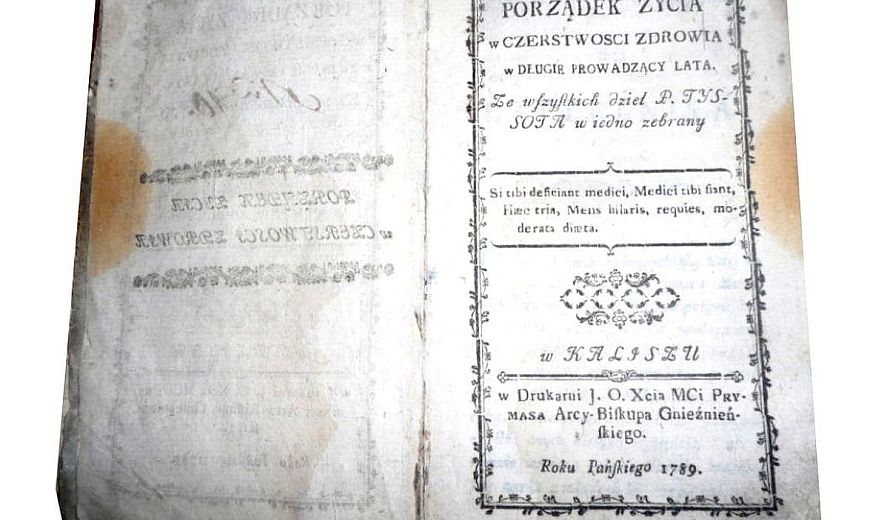 PORZĄDEK ZYCIA
w CZERSTWOSCI ZDROWIA
w DŁUGIE PROWADZĄCY LATA.
Ze wſzyſtkich dzieł P. TYS-
SOTA w iedno zebrany
Si tibi deficiant medici, Medici tibi fiant,
Hæc tria, Mens hilaris, requies, mo-
derata diæta.
w KALISZU
w Drukarni J. O. Xcia MCi PRY-
MASA Arcy-Biſkupa Gnieźnień-
ſkiego.
Roku Pańſkiego 1789.